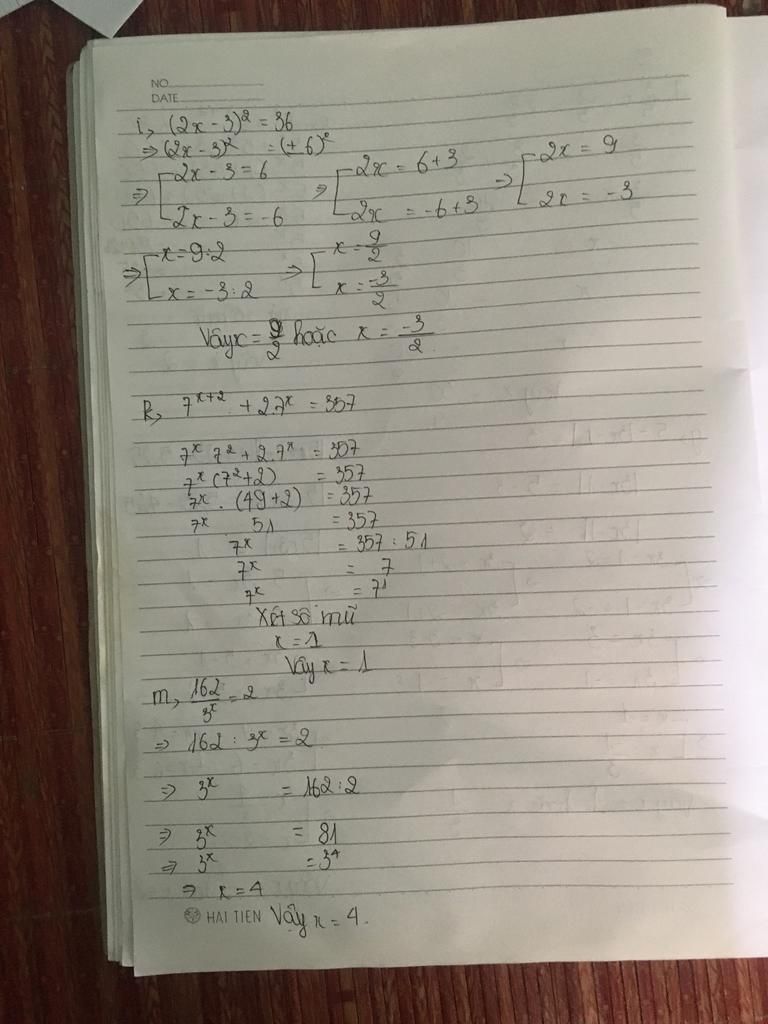 NO
DATE
i, (2x - 3)² = 36
⇒ (2x - 3)² = (± 6)²
⇒ [ 2x - 3 = 6 ⇒ [ 2x = 6 + 3 ⇒ [ 2x = 9
2x - 3 = -6 2x = -6 + 3 2x = -3
⇒ [ x = 9 : 2 ⇒ [ x = 9/2
x = -3 : 2 x = -3/2
Vậy x = 9/2 hoặc x = -3/2
k, 7ˣ⁺² + 2.7ˣ = 357
7ˣ 7² + 2.7ˣ = 357
7ˣ (7² + 2) = 357
7ˣ . (49 + 2) = 357
7ˣ 51 = 357
7ˣ = 357 : 51
7ˣ = 7
7ˣ = 7¹
Xét số mũ
x = 1
Vậy x = 1
m, 162/3ˣ = 2
⇒ 162 : 3ˣ = 2
⇒ 3ˣ = 162 : 2
⇒ 3ˣ = 81
⇒ 3ˣ = 3⁴
⇒ x = 4
HAI TIEN Vậy x = 4.